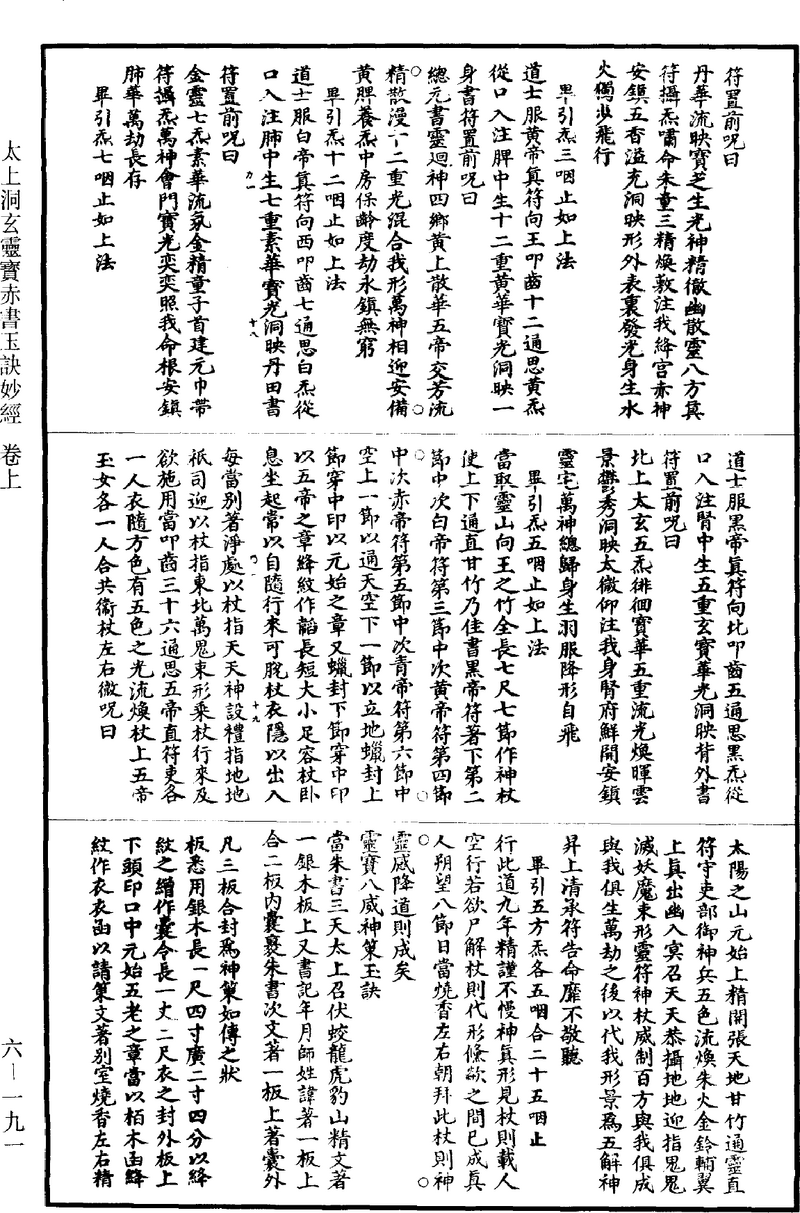 符置前呪曰
丹華流映寶芝生光神精徹幽散靈八方真
符攝炁嘯命朱童三精煥敷注我絳宮赤神
安鎮五香溢充洞映形外表裏發光身生水
火獨步飛行
畢引炁三咽止如上法
道士服黃帝真符向王叩齒十二通思黃炁
從口入注脾中生十二重黃華寶光洞映一
身書符置前呪曰
總元書靈迴神四鄉黃上散華五帝交芳流
精散漫十二重光混合我形萬神相迎安備
黃脾養炁中房保齡度劫永鎮無窮
畢引炁十二咽止如上法
道士服白帝真符向西叩齒七通思白炁從
口入注肺中生七重素華寶光洞映丹田書
十八
符置前呪曰
金靈七炁素華流氛金精童子首建元巾帶
符攝炁萬神會門寶光奕奕照我命根安鎮
肺華萬劫長存
畢引炁七咽止如上法
道士服黑帝真符向北叩齒五通思黑炁從
口入注腎中生五重玄寶華光洞映背外書
符置前呪曰
北上太玄五炁徘徊寶華五重流光煥暉雲
景鬱秀洞映太微仰注我身腎府鮮開安鎮
靈宅萬神總歸身生羽服降形自飛
畢引炁五咽止如上法
當取靈山向王之竹全長七尺七節作神杖
使上下通直甘竹乃佳書黑帝符著下第二
節中次白帝符第三節中次黃帝符第四節
中次赤帝符第五節中次青帝符第六節中
空上一節以通天空下一節以立地蠟封上
節穿中印以元始之章又蠟封下節穿中印
以五帝之章絳紋作韜長短大小足容杖卧
息坐起常以自隨行來可脫杖衣隱以出入
十九
每當別著淨處以杖指天天神設禮指地地
祇司迎以杖指東北萬鬼束形乘杖行來及
欲施用當叩齒三十六通思五帝直符吏各
一人衣隨方色有五色之光流煥杖上五帝
玉女各一人合共衛杖左右微呪曰
太陽之山元始上精開張天地甘竹通靈直
符守吏部御神兵五色流煥朱火金鈴輔翼
上真出幽入冥召天天恭攝地地迎指鬼鬼
滅妖魔束形靈符神杖威制百方與我俱成
與我俱生萬劫之後以代我形景為五解神
昇上清承符告命靡不敬聽
畢引五方炁各五咽合二十五咽止
行此道九年精謹不慢神真形見杖則載人
空行若欲尸解杖則代形倏歘之間已成真
人朔望八節日當燒香左右朝拜此杖則神
靈感降道則成矣
靈寶八威神策玉訣
當朱書三天太上召伏蛟龍虎豹山精文著
一銀木板上又書記年月師姓諱著一板上
合二板內囊裹朱書次文著一板上著囊外
凡三板合封為神策如傳之狀
板悉用銀木長一尺四寸廣二寸四分以絳
紋之繒作囊令長一丈二尺衣之封外板上
下頭印口中元始五老之章當以栢木函絳
紋作衣衣函以請策文著別室燒香左右精
太上洞玄靈寶赤書玉訣妙經 卷上
六—一九一